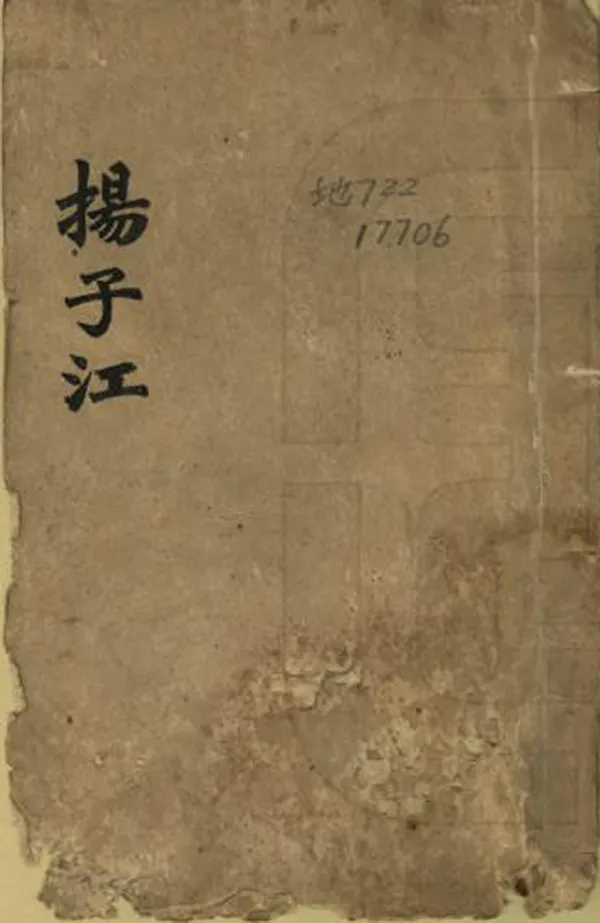 揚子江
地722
17706